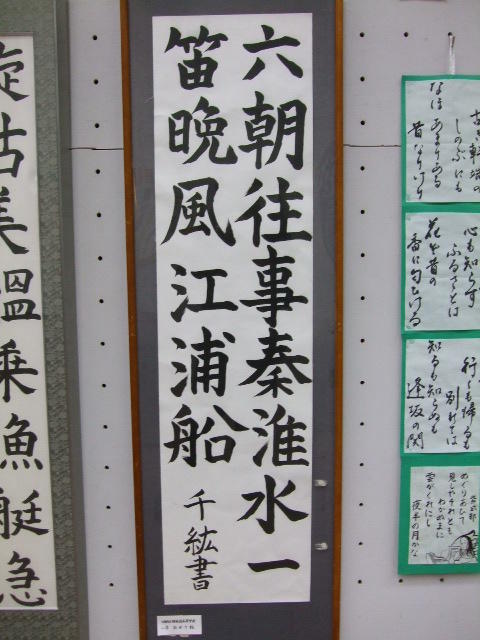 六朝往事秦淮水一
笛晩風江浦船
千紘書
古き軒端の
しのぶにも
なほあまりある
昔なりけり
心も知らず
ふるさとは
花ぞ昔の
香に匂ひける
行くも帰るも
別れては
知るも知らぬも
逢坂の関
めぐりあひて
見しやそれとも
わかぬまに
雲がくれにし
夜半の月かな
乗魚艇急